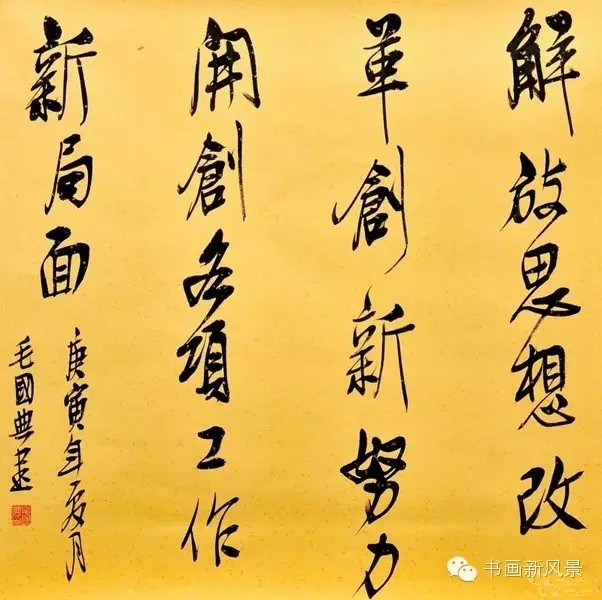 解放思想改
革創新努力
開創各項工作
新局面
庚寅年夏月
毛國典書
书画新风景